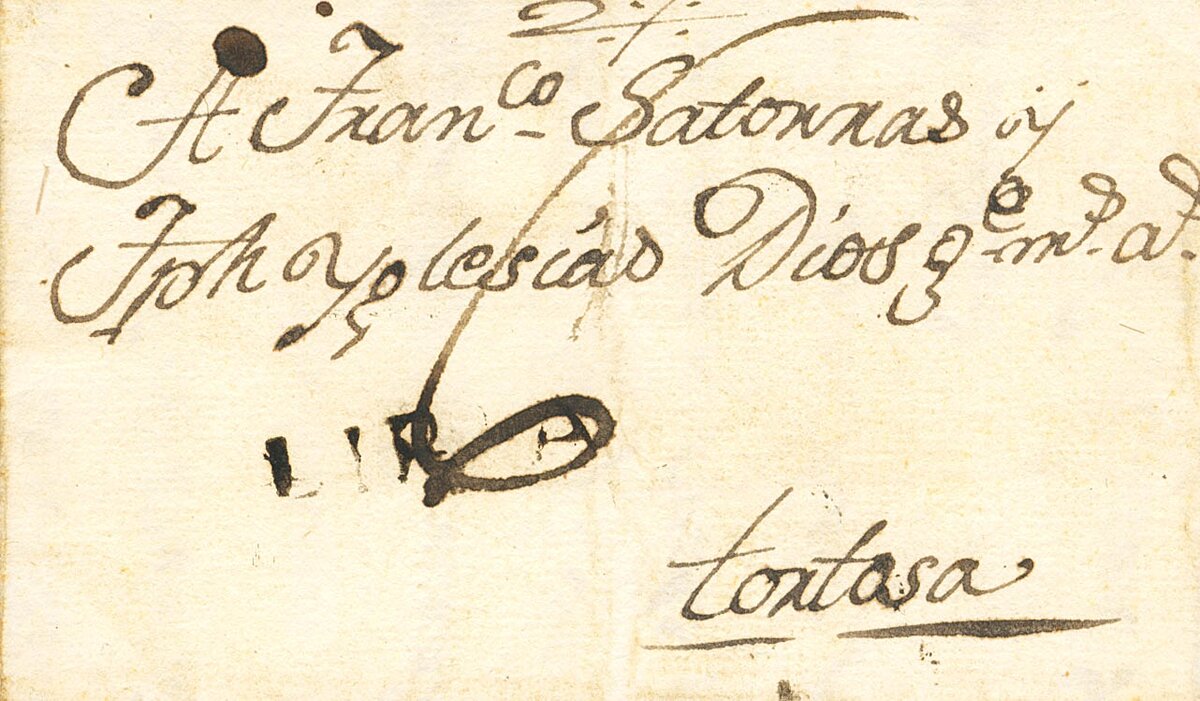 A Fran.co Satorras y
Jph Yglesias Dios g.e m.s a.s
LIRIA
tortosa